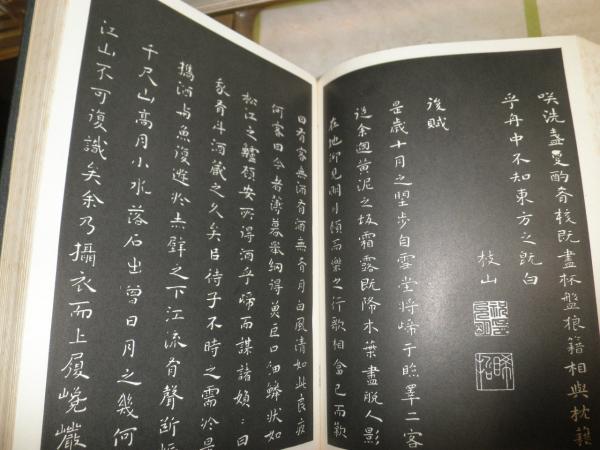 咲洗盞更酌肴核既盡杯盤狼籍相與枕藉
乎舟中不知東方之既白
枝山
後賦
是歲十月之望步自雪堂將歸于臨皋二客
從余過黃泥之坂霜露既降木葉盡脫人影
在地仰見明月顧而樂之行歌相答已而歎
曰有客無酒有酒無肴月白風清如此良夜
何客曰今者薄暮舉網得魚巨口細鱗狀如
松江之鱸顧安所得酒乎歸而謀諸婦〻曰
我有斗酒藏之久矣以待子不時之需於是
攜酒与魚復遊於赤壁之下江流有聲斷
千尺山高月小水落石出曾日月之幾何
江山不可復識矣余乃攝衣而上履巉巖